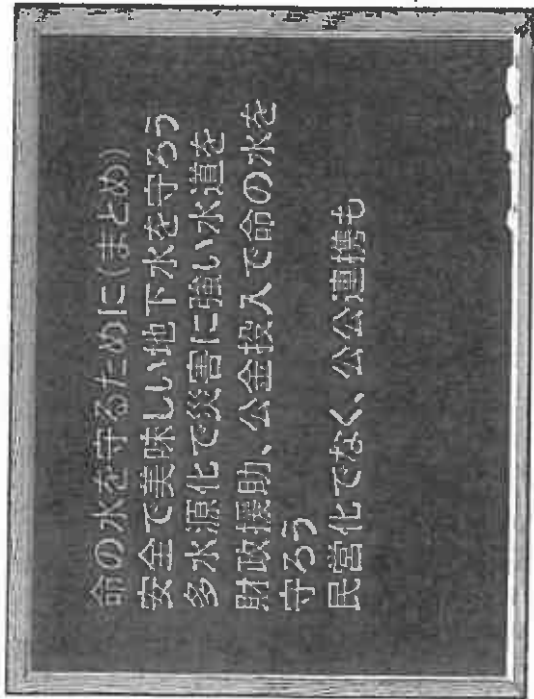 命の水を守るために(まとめ))
安全で美味しい地下水を守ろう
多水源化で災害に強い水道を
財政援助、公金投入で命の水を
守ろう
民営化でなく、公公連携も